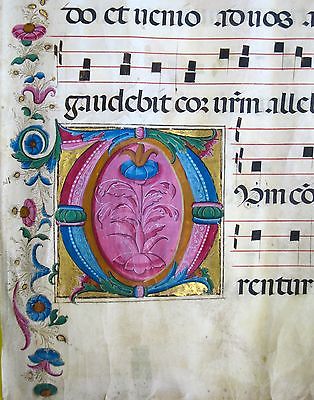 do et uenio ad uos a
gaudebit cor ur̃m alle
DVm cõ
rentur